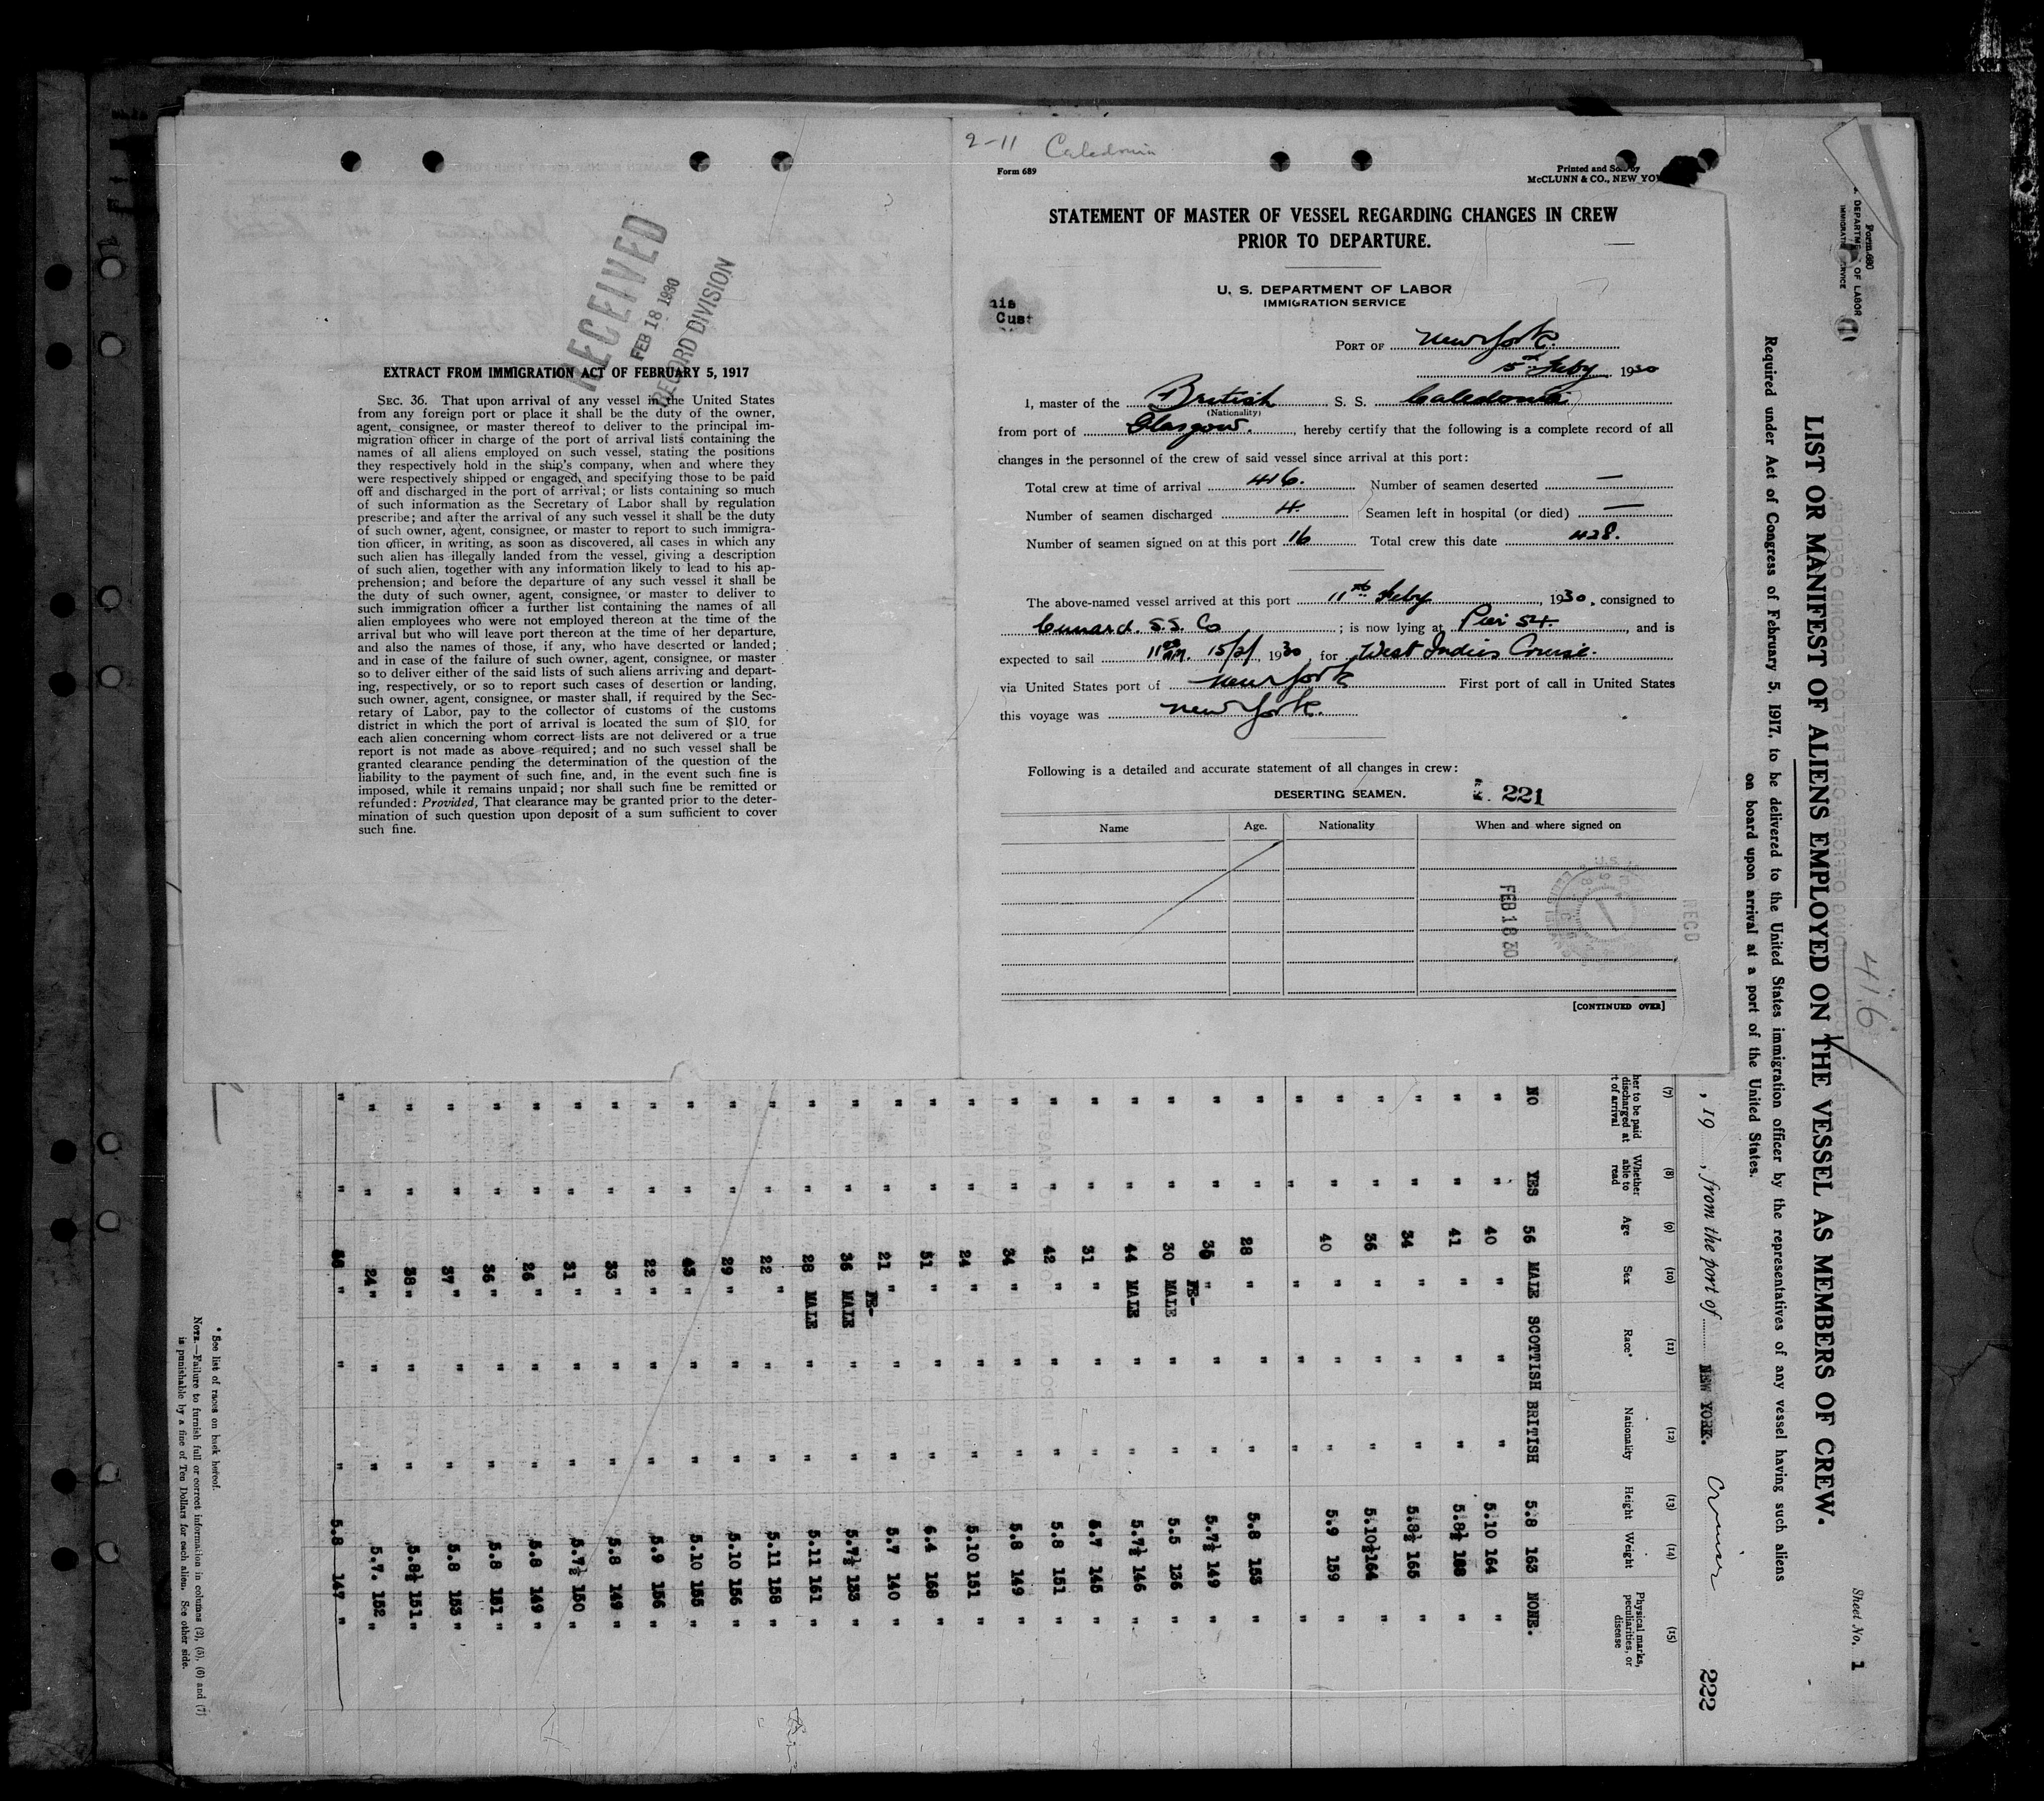 RECEIVED
FEB 18 1930
RECORD DIVISION
EXTRACT FROM IMMIGRATION ACT OF FEBRUARY 5, 1917
SEC. 36. That upon arrival of any vessel in the United States
from any foreign port or place it shall be the duty of the owner,
agent, consignee, or master thereof to deliver to the principal im-
migration officer in charge of the port of arrival lists containing the
names of all aliens employed on such vessel, stating the positions
they respectively hold in the ship's company, when and where they
were respectively shipped or engaged, and specifying those to be paid
off and discharged in the port of arrival; or lists containing so much
of such information as the Secretary of Labor shall by regulation
prescribe; and after the arrival of any such vessel it shall be the duty
of such owner, agent, consignee, or master to report to such immigra-
tion officer, in writing, as soon as discovered, all cases in which any
such alien has illegally landed from the vessel, giving a description
of such alien, together with any information likely to lead to his ap-
prehension; and before the departure of any such vessel it shall be
the duty of such owner, agent, consignee, or master to deliver to
such immigration officer a further list containing the names of all
alien employees who were not employed thereon at the time of the
arrival but who will leave port thereon at the time of her departure,
and also the names of those, if any, who have deserted or landed;
and in case of the failure of such owner, agent, consignee, or master
so to deliver either of the said lists of such aliens arriving and depart-
ing, respectively, or so to report such cases of desertion or landing,
such owner, agent, consignee, or master shall, if required by the Sec-
retary of Labor, pay to the collector of customs of the customs
district in which the port of arrival is located the sum of $10 for
each alien concerning whom correct lists are not delivered or a true
report is not made as above required; and no such vessel shall be
granted clearance pending the determination of the question of the
liability to the payment of such fine, and, in the event such fine is
imposed, while it remains unpaid; nor shall such fine be remitted or
refunded: Provided, That clearance may be granted prior to the deter-
mination of such question upon deposit of a sum sufficient to cover
such fine.
2-11 Caledonia
Form 689
Printed and Sold by
McCLUNN & CO., NEW YO
STATEMENT OF MASTER OF VESSEL REGARDING CHANGES IN CREW
PRIOR TO DEPARTURE.
U. S. DEPARTMENT OF LABOR
IMMIGRATION SERVICE
his
Cust
PORT OF New York.
15th Feby 1930
I, master of the British S. S. Caledonia
(Nationality)
from port of Glasgow., hereby certify that the following is a complete record of all
changes in the personnel of the crew of said vessel since arrival at this port:
Total crew at time of arrival 416. Number of seamen deserted —
Number of seamen discharged 4 Seamen left in hospital (or died) —
Number of seamen signed on at this port 16 Total crew this date 428.
The above-named vessel arrived at this port 11th Feby, 1930, consigned to
Cunard. S.S. Co; is now lying at Pier 54., and is
expected to sail 11 00 AM. 15/2/ 1930 for West Indies Cruise.
via United States port of New York First port of call in United States
this voyage was New York.
Following is a detailed and accurate statement of all changes in crew:
DESERTING SEAMEN.
221
Name Age. Nationality When and where signed on
FEB 18 30
RECD
[CONTINUED OVER]
Form 680
DEPARTMENT OF LABOR
IMMIGRATION SERVICE
Sheet No. 1
416
LIST OR MANIFEST OF ALIENS EMPLOYED ON THE VESSEL AS MEMBERS OF CREW.
Required under Act of Congress of February 5, 1917, to be delivered to the United States immigration officer by the representatives of any vessel having such aliens
on board upon arrival at a port of the United States.
, 19 , from the port of NEW YORK. Cruiser 222
(7) (8) (9) (10) (11) (12) (13) (14) (15)
her to be paid discharged at t of arrival Whether able to read Age Sex Race* Nationality Height Weight Physical marks, peculiarities, or disease
NO YES 56 MALE SCOTTISH BRITISH 5.8 163 NONE.
" " 40 " " " 5.10 164 "
" " 41 " " " 5.8½ 188 "
" " 34 " " " 5.8½ 165 "
" " 36 " " " 5.10½ 164 "
" " 40 " " " 5.9 159 "
" " " " " "
" " 28 " " " 5.8 153 "
" " 35 " " " 5.7½ 149 "
" " 30 FE-MALE " " 5.5 136 "
" " 44 MALE " " 5.7½ 146 "
" " 31 " " " 5.7 145 "
" " 42 " " " 5.8 151 "
" " 34 " " " 5.8 149 "
" " 24 " " " 5.10 151 "
" " 51 " " " 6.4 168 "
" " 21 " " " 5.7 140 "
" " 36 FE-MALE " " 5.7½ 133 "
" " 28 MALE " " 5.11 161 "
" " 22 " " " 5.11 158 "
" " 29 " " " 5.10 156 "
" " 43 " " " 5.10 155 "
" " 22 " " " 5.9 156 "
" " 33 " " " 5.8 149 "
" " 31 " " " 5.7½ 150 "
" " 26 " " " 5.8 149 "
" " 36 " " " 5.8 151 "
" " 37 " " " 5.8 153 "
" " 38 " " " 5.8½ 151 "
" " 24 " " " 5.7. 152 "
" " " " " 5.8 147 "
* See list of races on back hereof.
NOTE.—Failure to furnish full or correct information in columns (2), (5), (6) and (7)
is punishable by a fine of Ten Dollars for each alien. See other side.